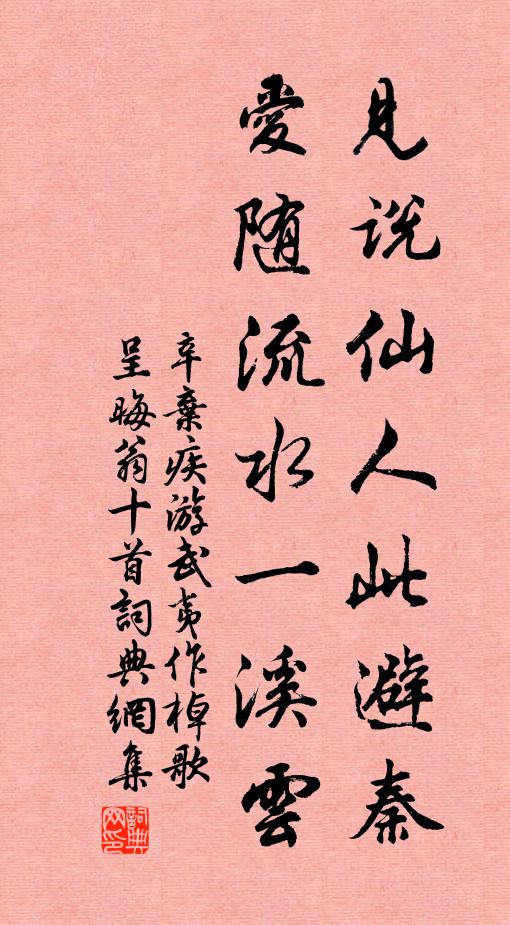 見説仙人此避秦
愛随流水一溪雲
辛棄疾游武夷作棹歌
呈晦翁十首詞典網集
詞典
网印